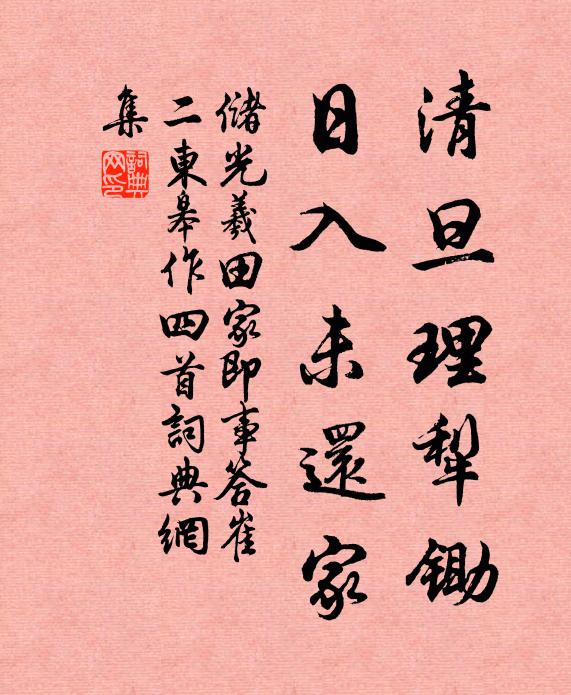 清旦理犁鋤
日入未還家
儲光羲田家即事答崔
二東皋作四首詞典網
集
詞典
网印